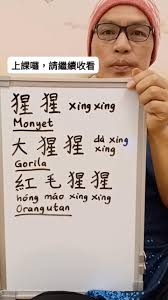 上課囉，請繼續收看
猩猩 xīng xīng
Monyet
大猩猩 dà xīng
xīng
Gorila
紅毛猩猩
hóng máo xīng xīng
Orangutan